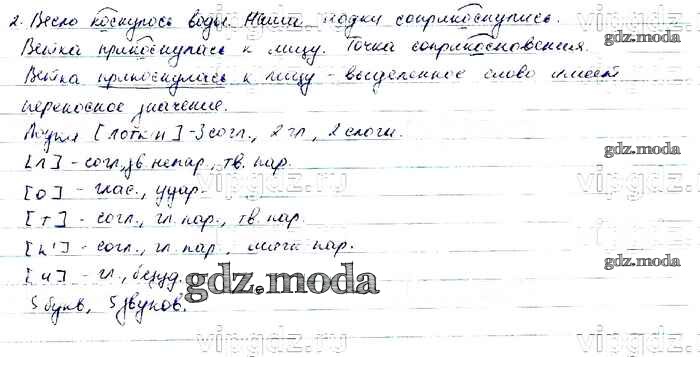 2. Весло коснулось воды. Наши лодки соприкоснулись.
Ветка прикоснулась к лицу. Точка соприкосновения.
Ветка прикоснулась к лицу - выделенное слово имеет
переносное значение.
Лодки [лотк'и] - 3 согл., 2 гл., 2 слога.
[л] - согл., зв. непар., тв. пар.
[о] - глас., удар.
[т] - согл., гл. пар., тв. пар.
[к'] - согл., гл. пар., мягк. пар.
[и] - гл., безуд.
5 букв, 5 звуков.
gdz.moda
gdz.moda
gdz.moda
gdz.moda
gdz.moda
vipgdz.ru
vipgdz.ru
vipgdz.ru
vipgdz.ru